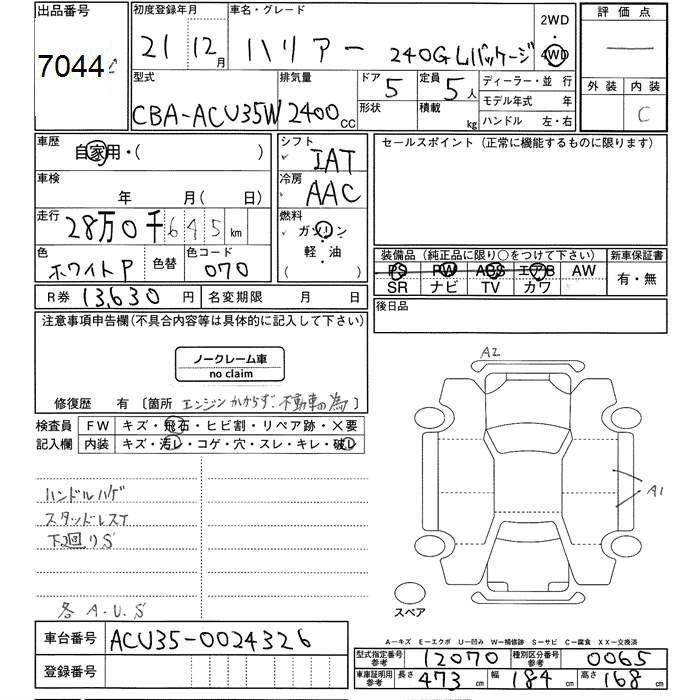 出品番号
7044
初度登録年月
21 年 12 月
車名・グレード
ハリアー 240G Lパッケージ
2WD
4WD
評価点
外装 内装
C
型式
CBA-ACU35W
排気量
2400 CC
ドア 5
形状
定員 5 人
積載 kg
ディーラー・並行
モデル年式 年
ハンドル 左・右
車歴
自家用・( )
車検
年 月( 日)
走行
28万0千645 km
色
ホワイトP
色替
色コード
070
シフト
IAT
冷房
AAC
燃料
ガソリン
軽・油
( )
セールスポイント(正常に機能するものに限ります)
装備品(純正品に限り○をつけて下さい)
PS PW ABS エアB AW
SR ナビ TV カワ
新車保証書
有・無
R券 13,630 円
名変期限 月 日
後日品
注意事項申告欄(不具合内容等は具体的に記入して下さい)
ノークレーム車
no claim
修復歴 有 〔箇所 エンジンかからず.不動車の為〕
検査員
記入欄
FW キズ・飛石・ヒビ割・リペア跡・X要
内装 キズ・汚レ・コゲ・穴・スレ・キレ・破レ
ハンドルハゲ
スタッドレスT
下廻りS
各 A.U.S
A2
A1
スペア
車台番号 ACU35-0024326
登録番号
A-キズ E-エクボ U-凹み W-補修跡 S-サビ C-腐食 XX-交換済
型式指定番号
参考
12070
種別区分番号
参考
0065
車庫証明用
参考
長さ 473 cm 幅 184 cm 高さ 168 cm